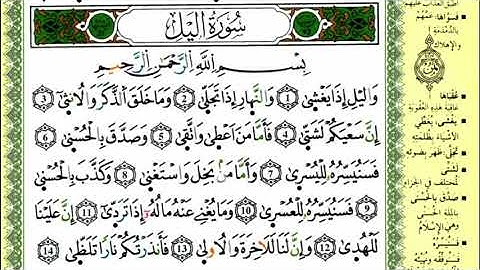 سُورَةُ اللَّيْلِ
بِسْمِ اللَّهِ الرَّحْمَٰنِ الرَّحِيمِ
وَاللَّيْلِ إِذَا يَغْشَىٰ ١ وَالنَّهَارِ إِذَا تَجَلَّىٰ ٢ وَمَا خَلَقَ الذَّكَرَ وَالْأُنثَىٰ ٣
إِنَّ سَعْيَكُمْ لَشَتَّىٰ ٤ فَأَمَّا مَنْ أَعْطَىٰ وَاتَّقَىٰ ٥ وَصَدَّقَ بِالْحُسْنَىٰ ٦
فَسَنُيَسِّرُهُ لِلْيُسْرَىٰ ٧ وَأَمَّا مَنْ بَخِلَ وَاسْتَغْنَىٰ ٨ وَكَذَّبَ بِالْحُسْنَىٰ
٩ فَسَنُيَسِّرُهُ لِلْعُسْرَىٰ ١٠ وَمَا يُغْنِي عَنْهُ مَالُهُ إِذَا تَرَدَّىٰ ١١ إِنَّ عَلَيْنَا
لَلْهُدَىٰ ١٢ وَإِنَّ لَنَا لَلْآخِرَةَ وَالْأُولَىٰ ١٣ فَأَنذَرْتُكُمْ نَارًا تَلَظَّىٰ ١٤
فَسَوَّاهَا: عَمَّهُمْ
بِالدَّمْدَمَةِ
وَالإِهْلَاكِ
عُقْبَاهَا
عَاقِبَةَ هَذِهِ العُقُوبَةِ
يَغْشَى: يُغَطِّي
الأَشْيَاءَ بِظُلْمَتِهِ
تَجَلَّى: ظَهَرَ بِضَوْئِهِ
لَشَتَّى
لَمُخْتَلِفٌ فِي الجَزَاءِ
صَدَّقَ بِالحُسْنَى
بِالمِلَّةِ الحُسْنَى
وَهِيَ الإِسْلَامُ
فَسَنُيَسِّرُهُ